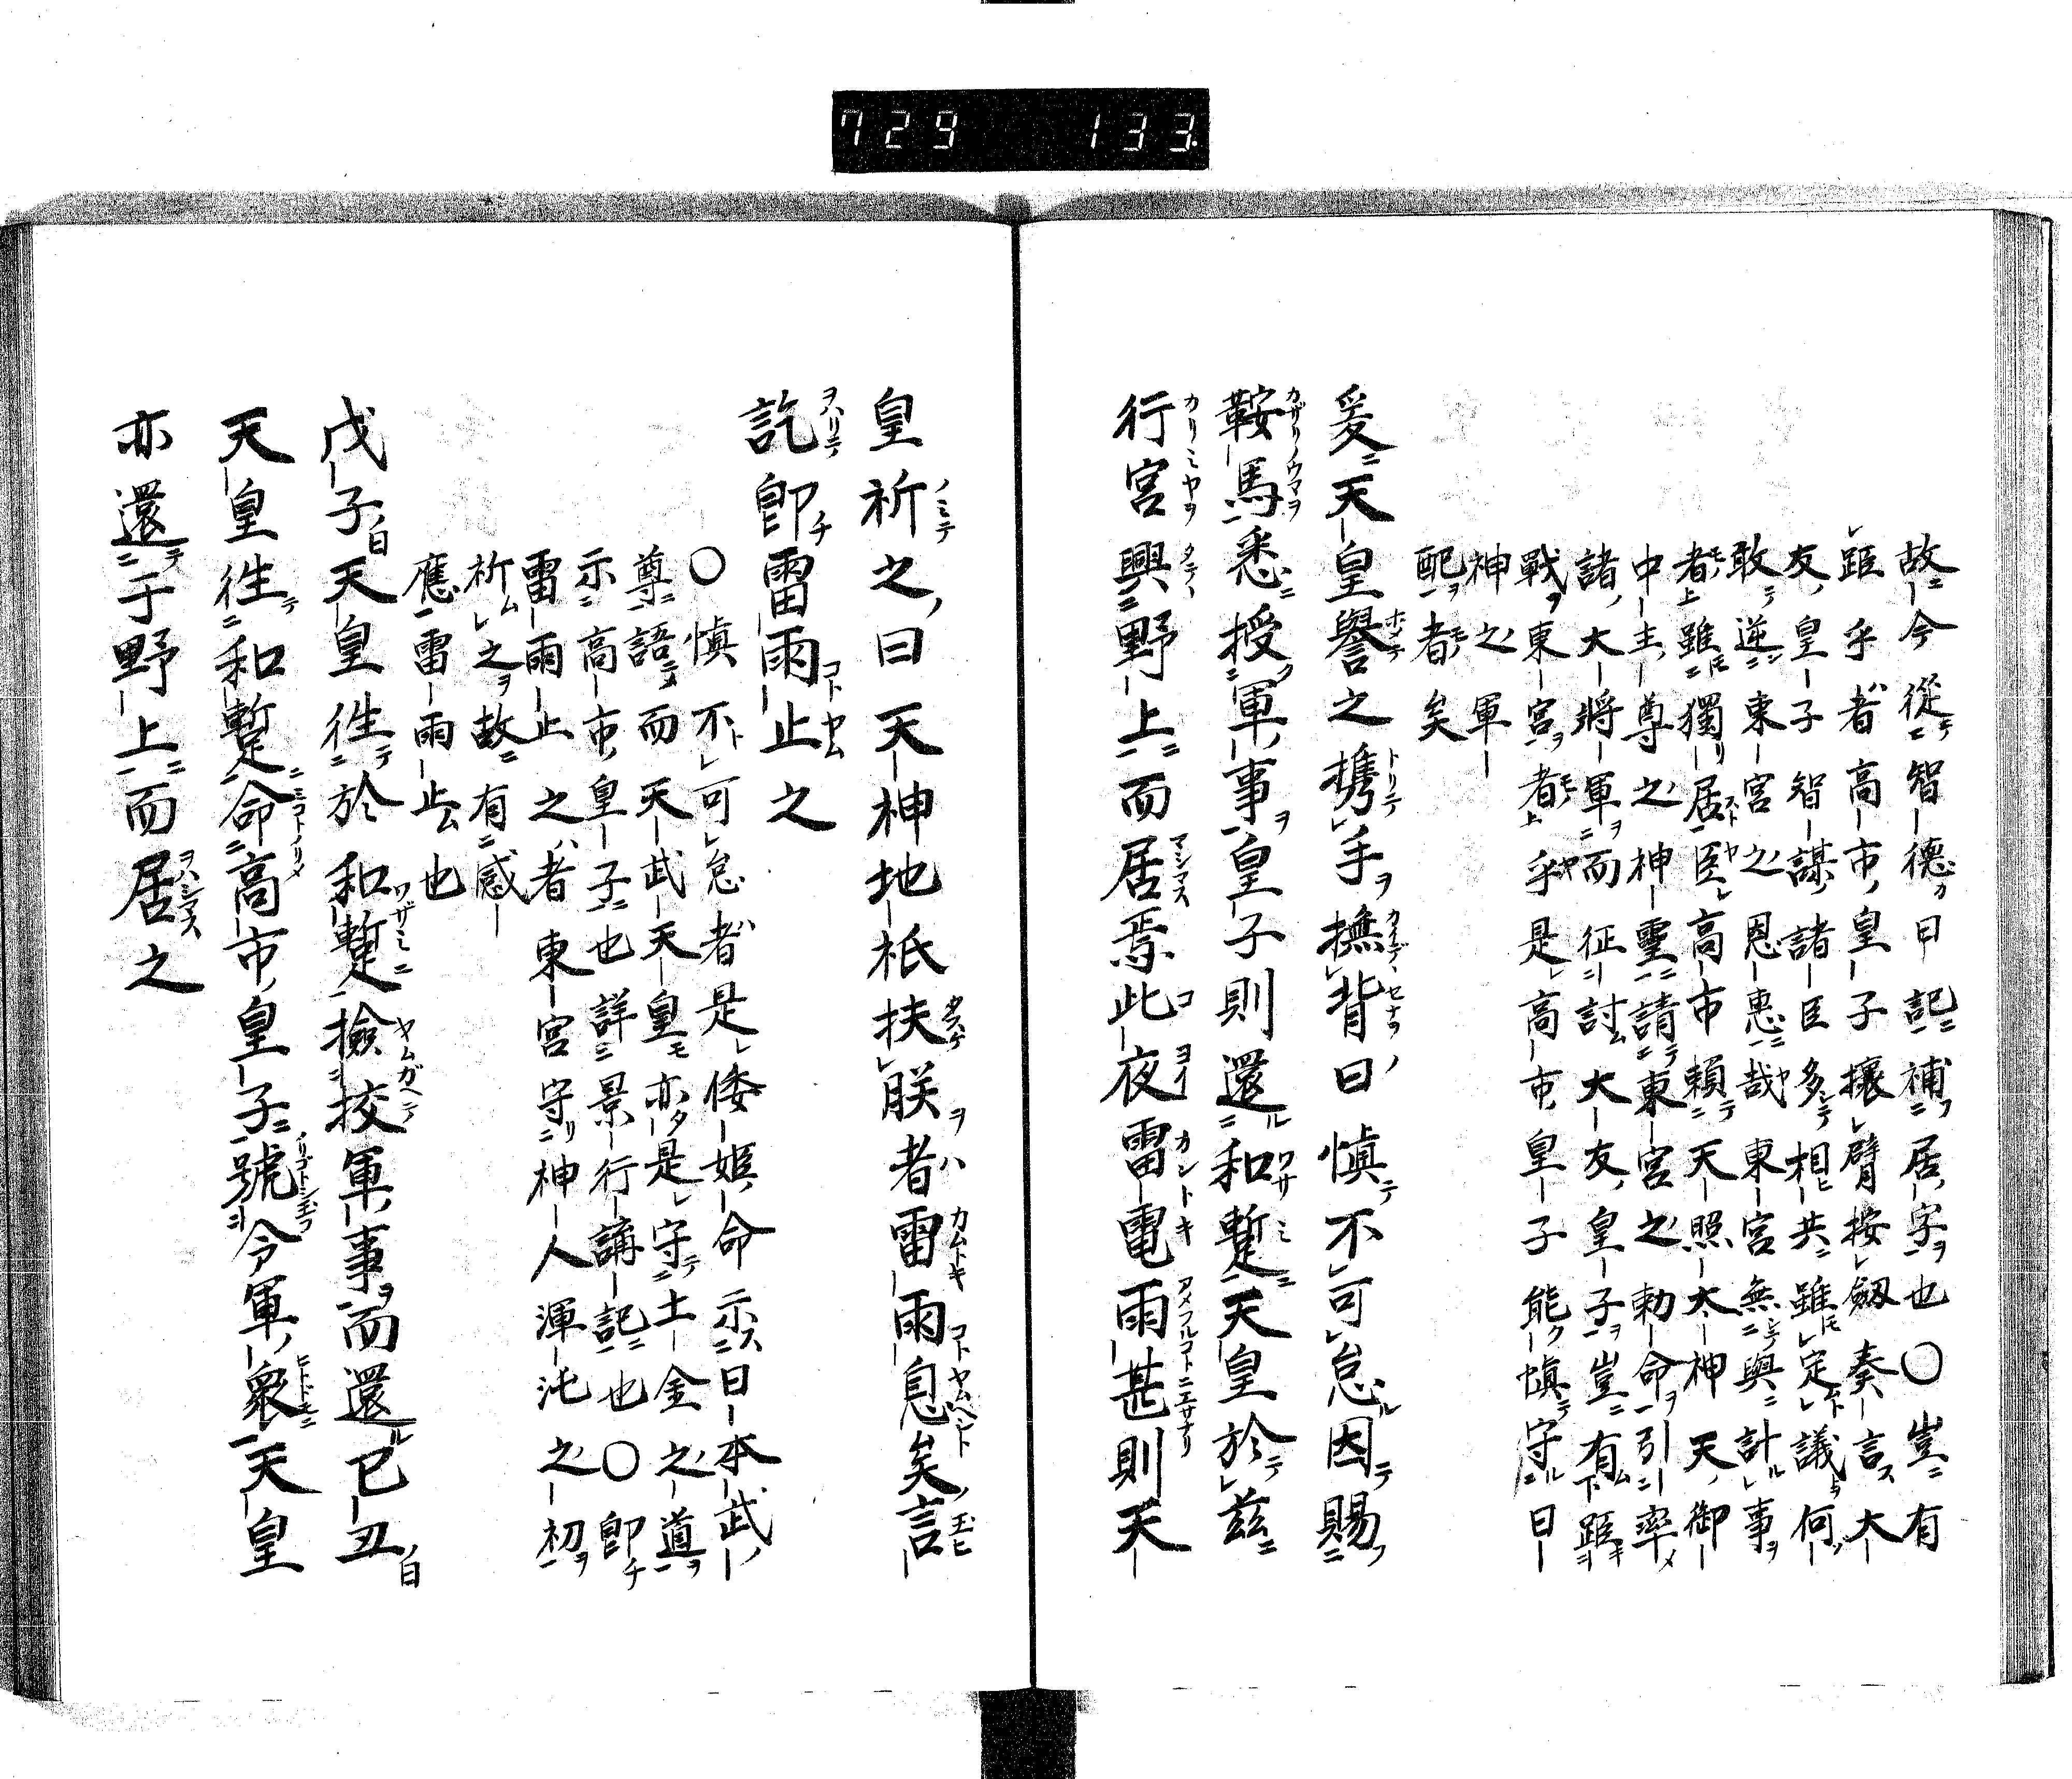 729 133
故今從智德曰記補居字也○豈有
距乎者高市皇子攘臂按劔奏言大
友皇子智謀諸臣多相共雖定議何
敢逆東宮之恩惠哉東宮無與計事
者雖獨居臣高市頼天照太神天御
中主尊之神靈請東宮之勅命引率
諸大將軍而征討大友皇子豈有距
戰東宮者乎是高市皇子能愼守日
神之軍
配者矣
爰天皇譽之携手撫背曰愼不可怠因賜
鞍馬悉授軍事皇子則還和蹔天皇於茲
行宮興野上而居焉此夜雷電雨甚則天
皇祈之曰天神地祇扶朕者雷雨息矣言
訖卽雷雨止之
○愼不可怠者是倭姫命示日本武
尊語而天武天皇亦是守土金之道
示高市皇子也詳景行講記也○卽
雷雨止之者東宮守神人渾沌之初
祈之故有感
應雷雨止也
戊子日天皇往於和蹔撿挍軍事而還己丑日
天皇往和蹔命高市皇子號令軍衆天皇
亦還于野上而居之